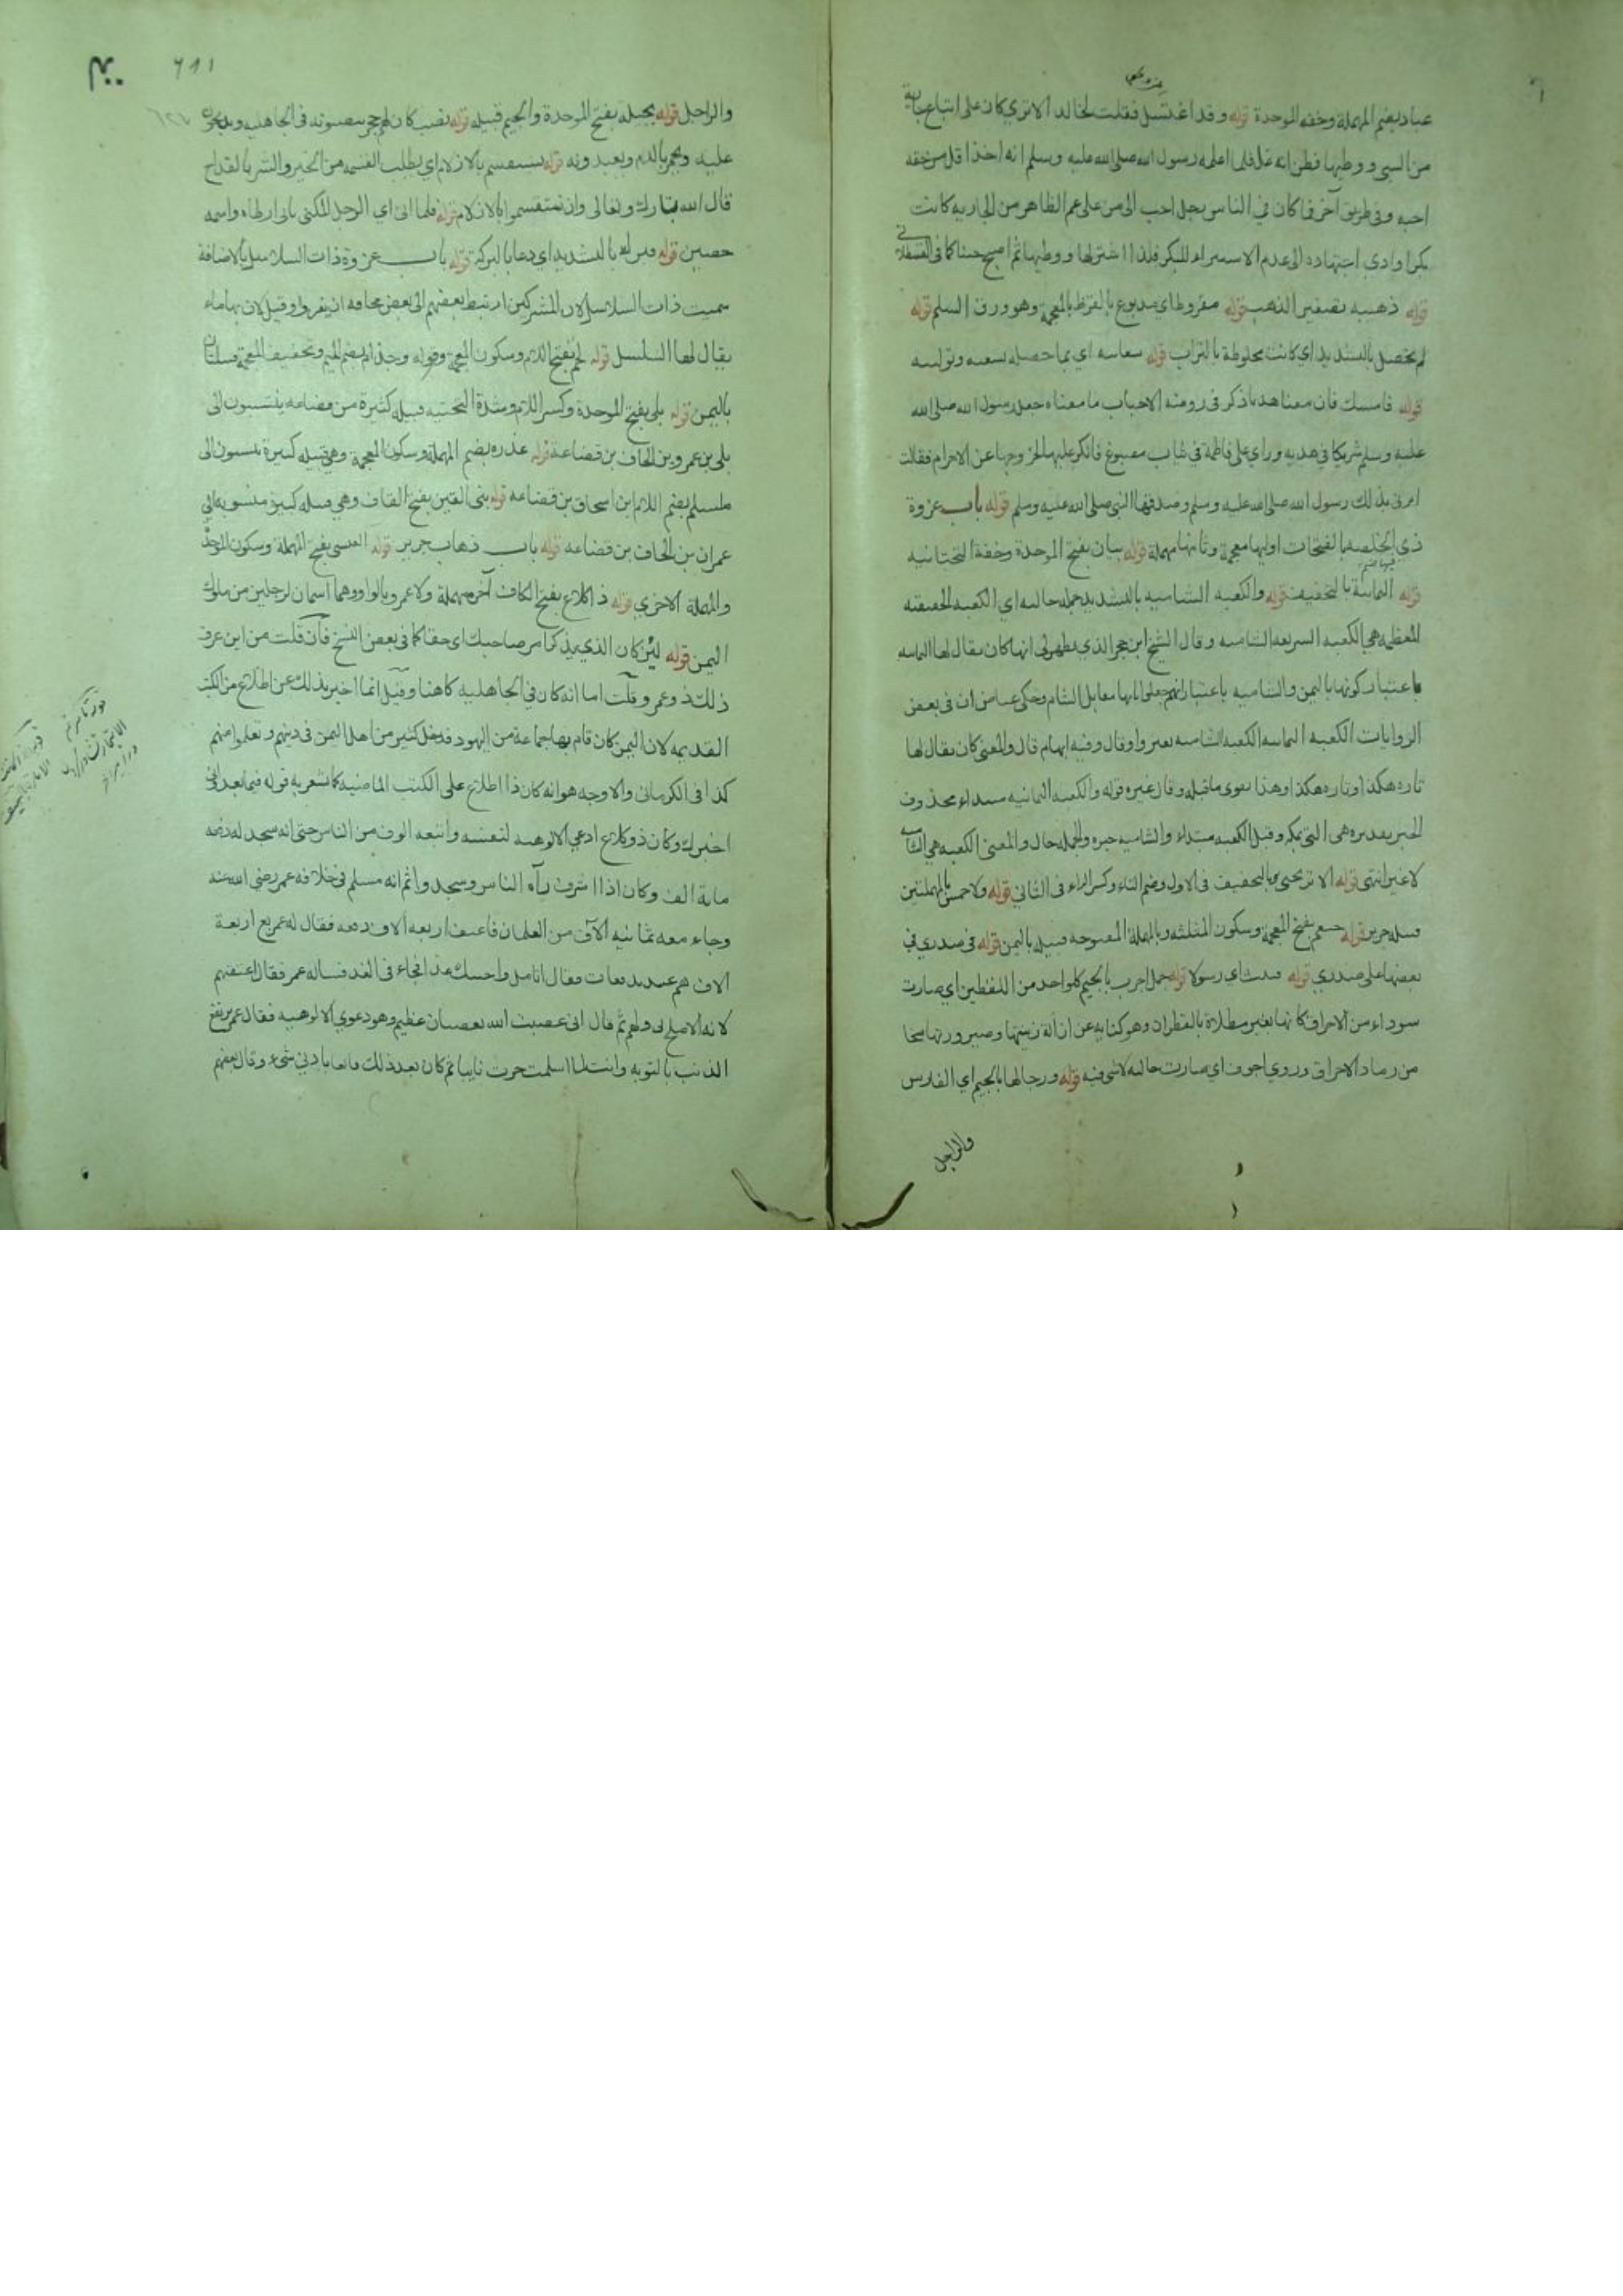 عباد بضم المهملة وخفه الموحدة قوله وقد اغتسل فقلت لخالد الا تري كان على اتباع
من السبي ووطيها فظن انه غل فلما اعلمه رسول الله صلى الله عليه وسلم انه اخذ اقل من حقه
احبه وفي طريق آخر فما كان في الناس رجل احب الى من على عم الظاهر من الجاريه كانت
بكرا وادى اجتهاده الى عدم الاستبراء للبكر فلذا اشترلها ووطيها ثم اصبح حسنا كما في القسطلاني
قوله ذهيبه تصغير الذهب قوله مقروظ اي مدبوغ بالقرظ بالمعجمة وهو ورق السلم قوله
لم تحصل بالتشديد اي كانت مخلوطة بالتراب قوله سعايته اي بما حصله بسعيه وتوليته
قوله فامسك فان معنا هديا ذكر في رومنه الاحباب ما معناه جعل رسول الله صلى الله
عليه وسلم شريكا في هديه وراي على فاطمة في ثياب مصبوغ فانكر عليها لخروجها عن الاحرام فقالت
امرني بذلك رسول الله صلى الله عليه وسلم وصدقها النبي صلى الله عليه وسلم قوله باب غزوة
ذي الخلصه بالفتحات اوليها معجمة وثانيها مهملة قوله بيان بفتح الموحدة وخفة التحتانيه
قوله اليمانية بالتخفيف قوله والكعبه الشاميه بالتشديد جمله حاليه اي الكعبه الحقيقته
المعظمه هي الكعبه الشاميه وقال الشيخ ابن حجر الذي يظهر لي انها كان يقال لها اليمانيه
باعتبار كونها باليمن والشاميه باعتبار انهم جعلوا بابها مقابل الشام وحكى عياض ان في بعض
الروايات الكعبه اليمانيه الكعبه الشاميه بغير واو قال وفيه ابهام قال والمعنى كان يقال لها
تاره هكذا وتاره هكذا وهذا يقوى ما قبله وقال غيره قوله والكعبه اليمانيه مبتداء محذوف
الخبر تقديره هي التي بمكه وقيل الكعبه مبتداء والشاميه خبره والجمله حال والمعنى الكعبه هي الشاميه
لا غير انتهى قوله الا تريحني بالتخفيف في الاول وضم التاء وكسر الراء في الثاني قوله ولاحمس بالمهملتين
قبيله جرير قوله خثعم بفتح المعجمة وسكون المثلثه وبالمهملة المفتوحه قبيله باليمن قوله في صدري في
بعضها على صدري قوله فبعث اي رسولا قوله جمل اجرب بالجيم كلواحد من اللفظين اي صارت
سوداء من الاحراق كانها بعير مطلاة بالقطران وهو كنايه عن ازاله زينتها وصيرورتها
من رماد الاحراق وروي اجوف اي صارت خاليه لا شي فيه قوله ورجالها بالجيم اي الفارس
والراجل
٦٢١
والراجل قوله بجيلة بفتح الموحدة والجيم قبيله قوله نصب كان لهم حجر ينصبونه في الجاهليه
عليه ويحمر بالدم ويعبدونه قوله يستقسم بالازلام اي يطلب القسمه من الخير والشر بالقداح
قال الله تبارك وتعالى وان تستقسموا بالازلام قوله فلما اتى اي الرجل المكنى بابي ارطاه واسمه
حصين قوله فبرك بالتشديد اي دعا بالبركة قوله باب غزوة ذات السلاسل بالاضافة
سميت ذات السلاسل لان المشركين ارتبط بعضهم الى بعض مخافه ان يفروا وقيل لان بها ماء
يقال لها السلسل قوله لخم بفتح اللام وسكون المعجمة وقوله وجذام بضم الجيم وتخفيف المعجمة قبيلتان
باليمن قوله بلي بفتح الموحدة وكسر اللام وشدة التحتيه قبيله كثيرة من قضاعه ينتسبون الى
بلى بن عمرو بن الحاف بن قضاعة قوله عذره بضم المهملة وسكون المعجمة وهي قبيله كبيرة ينسبون الى
بضم اللام ابن اسحاق بن قضاعه قوله بنى القين بفتح القاف وهي قبيله كبيرة منسوبه الى
عمران بن الحاف بن قضاعه قوله باب ذهاب جرير قوله العبسي بفتح المهملة وسكون الموحدة
والمهملة الاخري قوله ذا كلاع بفتح الكاف آخره مهملة ولاعمرو بالواو وهما اسمان لرجلين من ملوك
اليمن قوله لئن كان الذي يذكر امر صاحبك اي حقا كما في بعض النسخ فان قلت من اين عرف
ذلك ذو عمرو قلت اما انه كان في الجاهليه كاهنا وقيل انما اخبر بذلك عن اطلاع من الكتب
القديمه لان اليمن كان قام بها جماعة من اليهود فدخل كثير من اهل اليمن في دينهم وتعلموا منهم
كذا في الكرماني والاوجه هو انه كان ذا اطلاع على الكتب الماضيه كما تشعر به قوله فيما بعد اني
اخبرك وكان ذو كلاع ادعي الالوهيه لنفسه واتبعه الوف من الناس حتى انه سجد له دفعه
ماية الف وكان اذا اشرف رآه الناس وسجدوا ثم انه مسلم في خلافه عمر رضي الله عنه
وجاء معه ثمانيه آلاف من الغلمان فاعتق اربعه الاف دفعه فقال له عمر بع اربعة
الاف فقال اتامل واجيبك غدا فجاء في الغد فساله عمر فقال اعتقتهم
لانه الاصلح لي ولهم ثم قال اني عصيت الله بعصيان عظيم وهو دعوي الالوهيه فقال عمر يرتفع
الذنب بالتوبه وانت لما اسلمت صرت تايبا ثم كان بعد ذلك قانعا بادني شيء وقال بعضهم